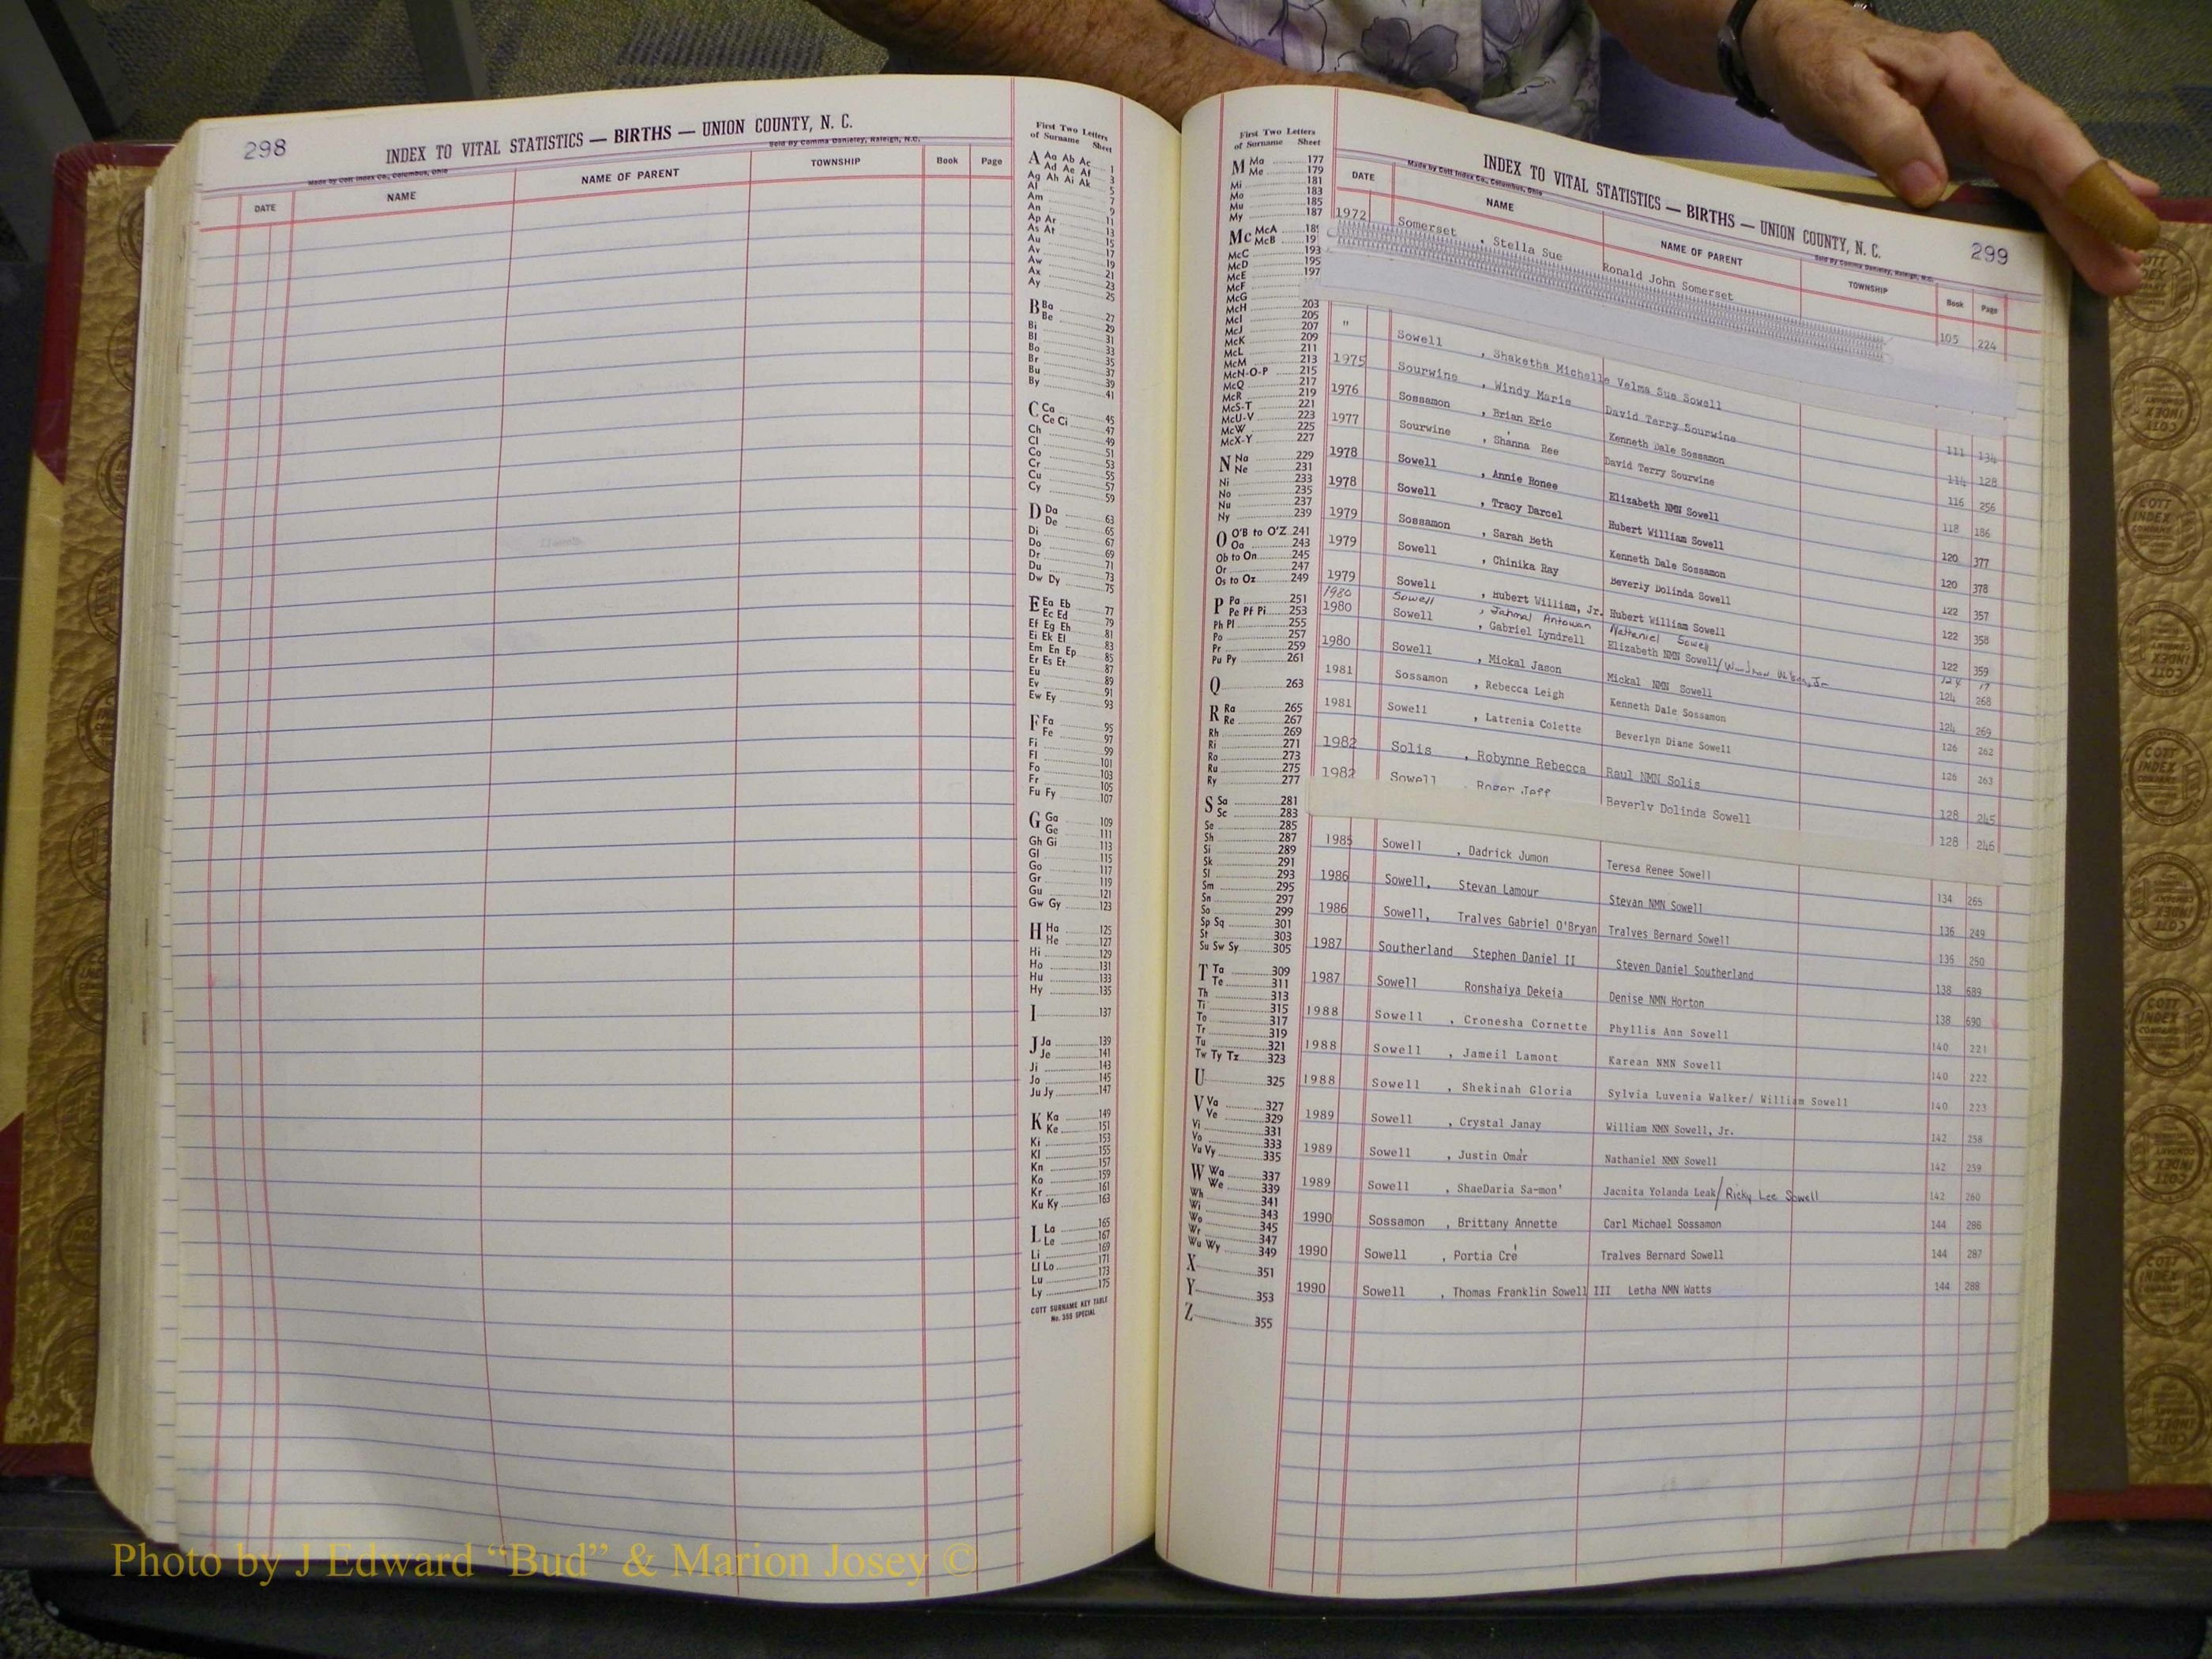 298
INDEX TO VITAL STATISTICS — BIRTHS — UNION COUNTY, N. C.
Made by Cott Index Co., Columbus, Ohio
DATE NAME NAME OF PARENT TOWNSHIP Book Page
First Two Letters
of Surname Sheet
A Aa Ab Ac 1
Ad Ae Af 3
Ag Ah Ai Ak 5
Al 7
Am 9
An 11
Ap Ar 13
As At 15
Au 17
Av 19
Aw 21
Ax 23
Ay 25
B Ba 27
Be 29
Bi 31
Bl 33
Bo 35
Br 37
Bu 39
By 41
C Ca 45
Ce Ci 47
Ch 49
Cl 51
Co 53
Cr 55
Cu 57
Cy 59
D Da 63
De 65
Di 67
Do 69
Dr 71
Du 73
Dw Dy 75
E Ea Eb 77
Ec Ed 79
Ef Eg Eh 81
Ei Ek El 83
Em En Ep 85
Er Es Et 87
Eu 89
Ev 91
Ew Ey 93
F Fa 95
Fe 97
Fi 99
Fl 101
Fo 103
Fr 105
Fu Fy 107
G Ga 109
Ge 111
Gh Gi 113
Gl 115
Go 117
Gr 119
Gu 121
Gw Gy 123
H Ha 125
He 127
Hi 129
Ho 131
Hu 133
Hy 135
I 137
J Ja 139
Je 141
Ji 143
Jo 145
Ju Jy 147
K Ka 149
Ke 151
Ki 153
Kl 155
Kn 157
Ko 159
Kr 161
Ku Ky 163
L La 165
Le 167
Li 169
Ll Lo 171
Lu 173
Ly 175
COTT SURNAME KEY TABLE
No. 355 SPECIAL
First Two Letters
of Surname Sheet
M Ma 177
Me 179
Mi 181
Mo 183
Mu 185
My 187
Mc McA
McB
McC 193
McD 195
McE 197
McF
McG
McH 203
McI 205
McJ 207
McK 209
McL 211
McM 213
McN-O-P 215
McQ 217
McR 219
McS-T 221
McU-V 223
McW 225
McX-Y 227
N Na 229
Ne 231
Ni 233
No 235
Nu 237
Ny 239
O O'B to O'Z 241
Oa 243
Ob to On 245
Or 247
Os to Oz 249
P Pa 251
Pe Pf Pi 253
Ph Pl 255
Po 257
Pr 259
Pu Py 261
Q 263
R Ra 265
Re 267
Rh 269
Ri 271
Ro 273
Ru 275
Ry 277
S Sa 281
Sc 283
Se 285
Sh 287
Si 289
Sk 291
Sl 293
Sm 295
Sn 297
So 299
Sp Sq 301
St 303
Su Sw Sy 305
T Ta 309
Te 311
Th 313
Ti 315
To 317
Tr 319
Tu 321
Tw Ty Tz 323
U 325
V Va 327
Ve 329
Vi 331
Vo 333
Vu Vy 335
W Wa 337
We 339
Wh 341
Wi 343
Wo 345
Wr 347
Wu Wy 349
X 351
Y 353
Z 355
INDEX TO VITAL STATISTICS — BIRTHS — UNION COUNTY, N. C.
299
Made by Cott Index Co., Columbus, Ohio
DATE NAME NAME OF PARENT TOWNSHIP Book Page
1972 Somerset , Stella Sue Ronald John Somerset 105 224
" Sowell , Shaketha Michelle Velma Sue Sowell
1975 Sourwine , Windy Marie David Terry Sourwine 111 134
1976 Sossamon , Brian Eric Kenneth Dale Sossamon 114 128
1977 Sourwine , Shanna Ree David Terry Sourwine 116 256
1978 Sowell , Annie Ronee Elizabeth NMN Sowell 118 186
1978 Sowell , Tracy Darcel Hubert William Sowell 120 377
1979 Sossamon , Sarah Beth Kenneth Dale Sossamon 120 378
1979 Sowell , Chinika Ray Beverly Dolinda Sowell 122 357
1979 Sowell , Hubert William, Jr. Hubert William Sowell 122 358
1980 Sowell , Jahmal Antowan Nathaniel Sowell
1980 Sowell , Gabriel Lyndrell Elizabeth NMN Sowell/ 122 359
1980 Sowell , Mickal Jason Mickal NMN Sowell 124 268
1981 Sossamon , Rebecca Leigh Kenneth Dale Sossamon 124 269
1981 Sowell , Latrenia Colette Beverlyn Diane Sowell 126 262
1982 Solis , Robynne Rebecca Raul NMN Solis 126 263
1982 Sowell , Roger Jeff Beverly Dolinda Sowell 128 245
128 246
1985 Sowell , Dadrick Jumon Teresa Renee Sowell
1986 Sowell, Stevan Lamour Stevan NMN Sowell 134 265
1986 Sowell, Tralves Gabriel O'Bryan Tralves Bernard Sowell 136 249
1987 Southerland Stephen Daniel II Steven Daniel Southerland 136 250
1987 Sowell Ronshaiya Dekeia Denise NMN Horton 138 689
1988 Sowell , Cronesha Cornette Phyllis Ann Sowell 138 690
1988 Sowell , Jameil Lamont Karean NMN Sowell 140 221
1988 Sowell , Shekinah Gloria Sylvia Luvenia Walker/ William Sowell 140 222
1989 Sowell , Crystal Janay William NMN Sowell, Jr. 140 223
1989 Sowell , Justin Omar Nathaniel NMN Sowell 142 258
1989 Sowell , ShaeDaria Sa-mon' Jacnita Yolanda Leak/Ricky Lee Sowell 142 259
142 260
1990 Sossamon , Brittany Annette Carl Michael Sossamon 144 286
1990 Sowell , Portia Cre' Tralves Bernard Sowell 144 287
1990 Sowell , Thomas Franklin Sowell III Letha NMN Watts 144 288
Photo by J Edward “Bud” & Marion Josey ©